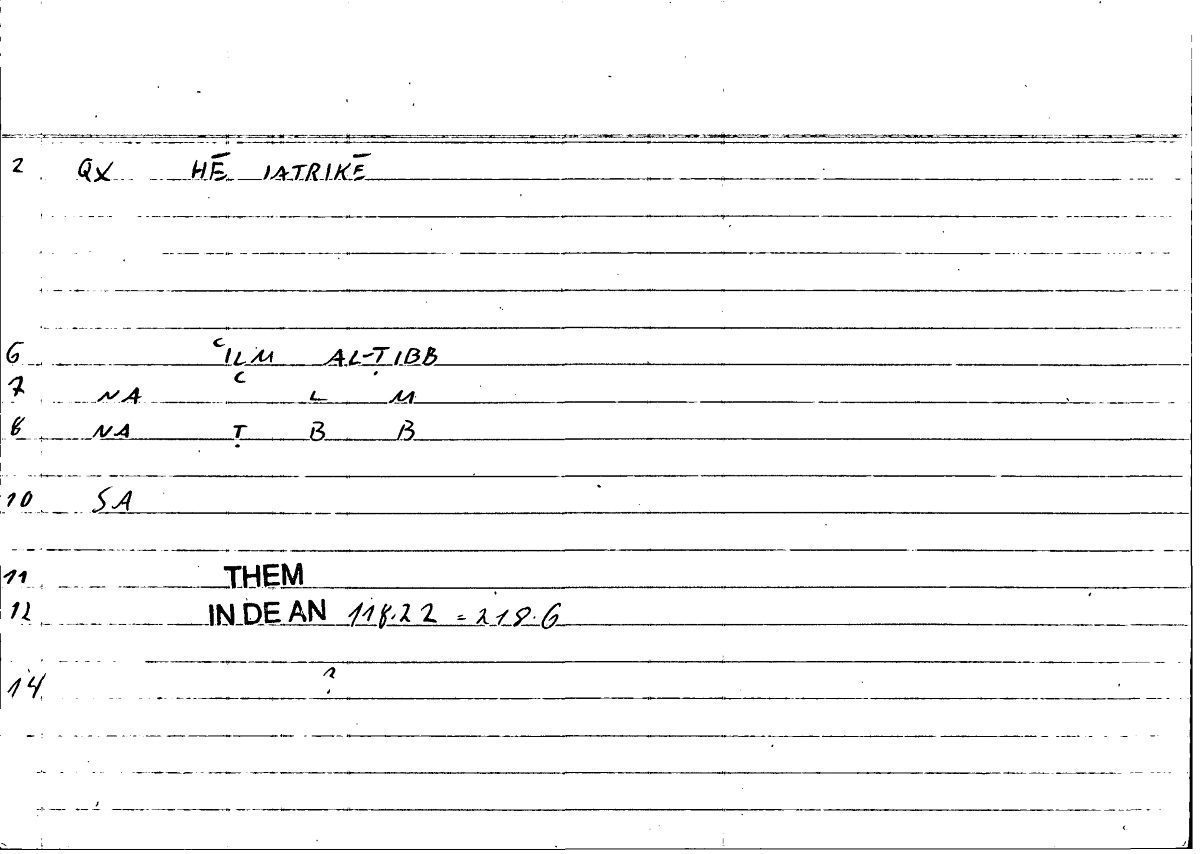 2 QX HĒ IATRIKĒ
6 ʿILM AL-ṬIBB
7 NA ʿ L M
8 NA Ṭ B B
10 SA
11 THEM
12 IN DE AN 118.22 = 218.6
14 ?